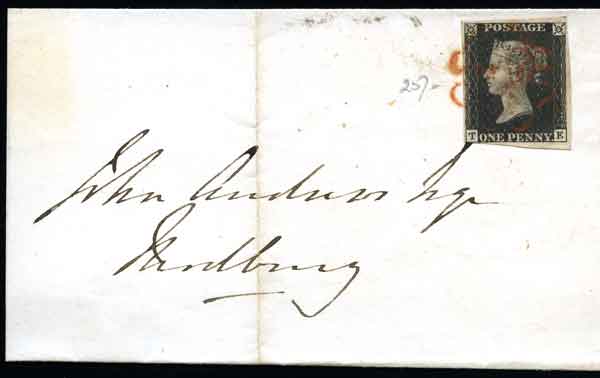 POSTAGE
T ONE PENNY E
John Andrews Esqe
Modbury